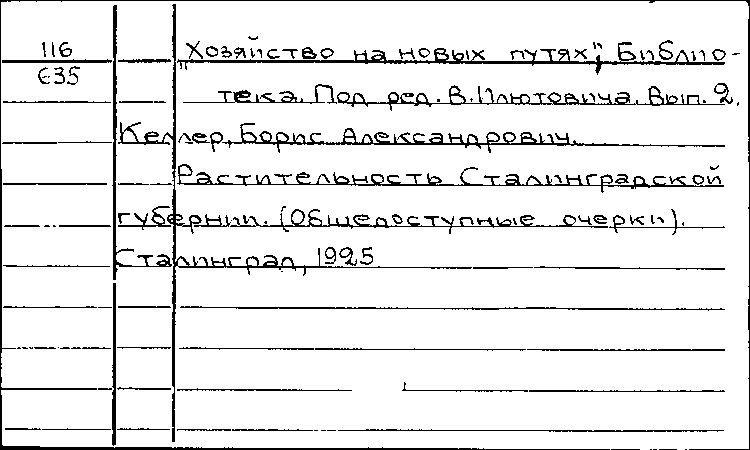 116
Є35
"Хозяйство на новых путях"; Библио-
тека. Под ред. В. Плютовича. Вып. 2.
Келлер, Борис Александрович.
Растительность Сталинградской
губернии. (Общедоступные очерки).
Сталинград, 1925